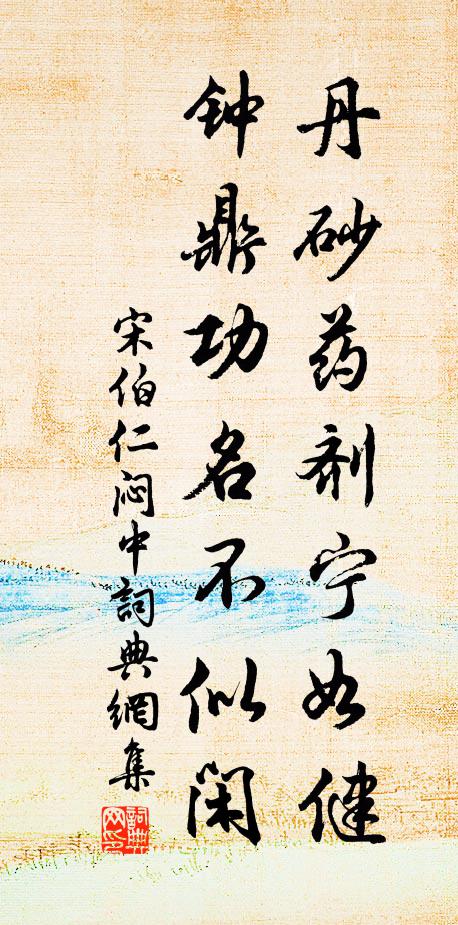 丹砂药剂宁如健
钟鼎功名不似闲
宋伯仁闷中詞典網集
詞典网印